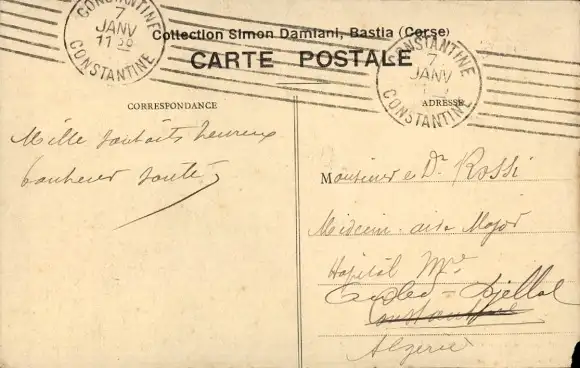 CONSTANTINE
7
JANV
CONSTANTINE
Collection Simon Damiani, Bastia (Corse)
CARTE POSTALE
CONSTANTINE
7
JANV
CONSTANTINE
CORRESPONDANCE
Mille souhaits heureux
bonheur santé
ADRESSE
Monsieur e Dr Rossi
Médecin aide Major
Hôpital Mre
Djellal
Constantine
Algérie